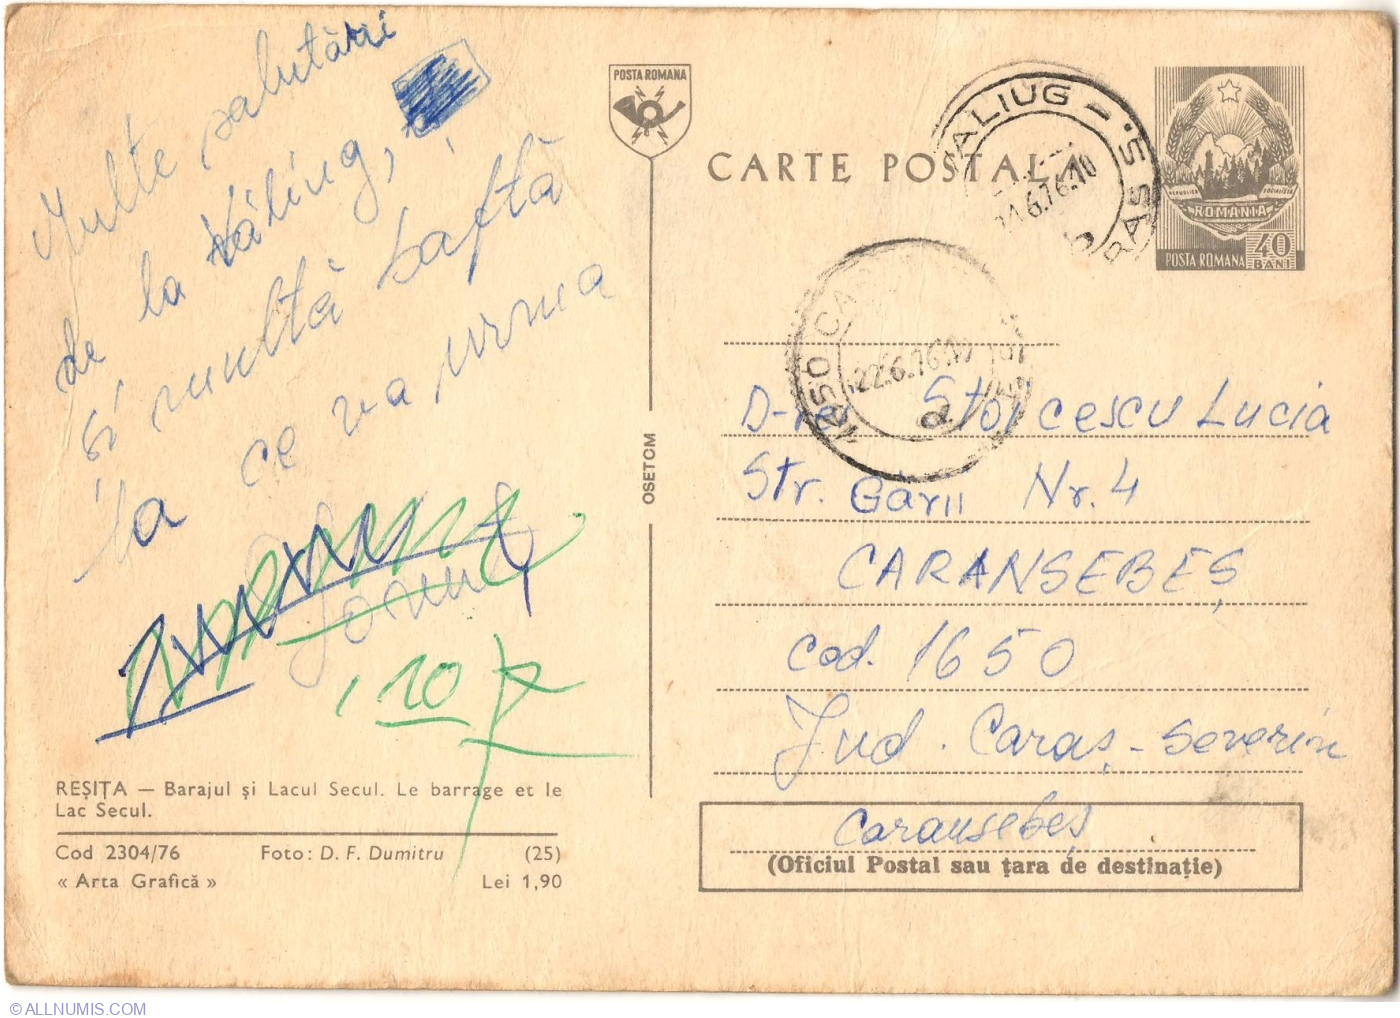 Multe salutări
de la Văliug,
și multă baftă
la ce va urma
110
REȘIȚA — Barajul și Lacul Secul. Le barrage et le
Lac Secul.
Cod 2304/76 Foto: D. F. Dumitru (25)
« Arta Grafică » Lei 1,90
OSETCM
POSTA ROMANA
CARTE POSTALĂ
VALIUG
21.6.76.10
22.6.76
REPUBLICA SOCIALISTA
ROMANIA
POSTA ROMANA 40
BANI
Stoicescu Lucia
Str. Gării Nr. 4
CARANSEBEȘ
cod. 1650
Jud. Caraș-Severin
Caransebeș
(Oficiul Postal sau țara de destinație)
© ALLNUMIS.COM